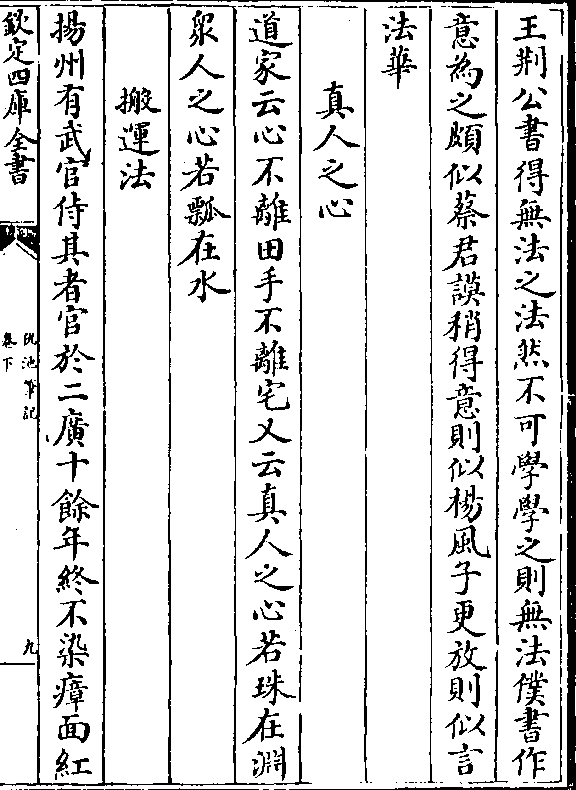 王荆公書得無法之法然不可學學之則無法僕書作
意為之頗似蔡君謨稍得意則似楊風子更放則似言
法華
真人之心
道家云心不離田手不離宅又云真人之心若珠在淵
衆人之心若瓢在水
搬運法
揚州有武官侍其者官於二廣十餘年終不染瘴面紅
欽定四庫全書
仇池筆記
卷下
九